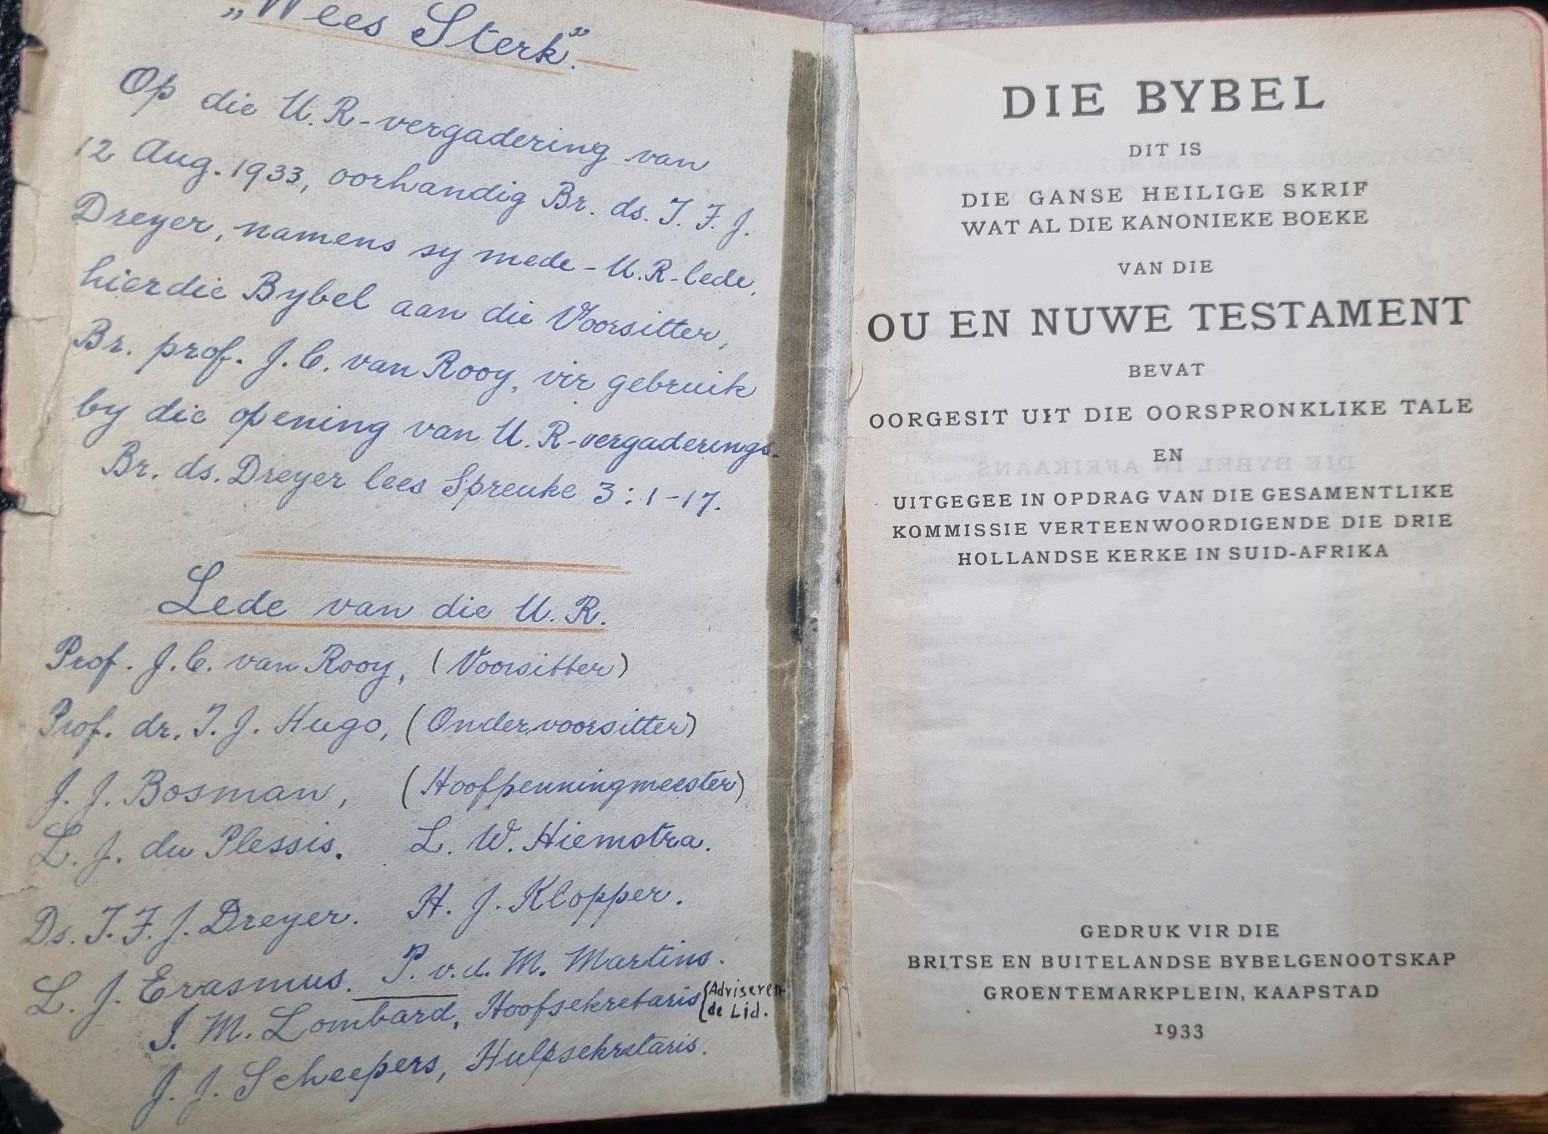 „Wees Sterk."
Op die U.R-vergadering van
12 Aug. 1933, oorhandig Br. ds. T. F. J.
Dreyer, namens sy mede-U.R-lede,
hierdie Bybel aan die Voorsitter,
Br. prof. J. C. van Rooy, vir gebruik
by die opening van U.R-vergaderings.
Br. ds. Dreyer lees Spreuke 3:1-17.
Lede van die U.R.
Prof. J. C. van Rooy, (Voorsitter)
Prof. dr. T. J. Hugo, (Ondervoorsitter)
J. J. Bosman, (Hoofpenningmeester)
L. J. du Plessis. L. W. Hiemstra.
Ds. T. F. J. Dreyer. H. J. Klopper.
L. J. Erasmus. P. v.d. M. Martins.
I. M. Lombard, Hoofsekretaris {Adviseren-
de Lid.
J. J. Scheepers, Hulpsekretaris.
DIE BYBEL
DIT IS
DIE GANSE HEILIGE SKRIF
WAT AL DIE KANONIEKE BOEKE
VAN DIE
OU EN NUWE TESTAMENT
BEVAT
OORGESIT UIT DIE OORSPRONKLIKE TALE
EN
UITGEGEE IN OPDRAG VAN DIE GESAMENTLIKE
KOMMISSIE VERTEENWOORDIGENDE DIE DRIE
HOLLANDSE KERKE IN SUID-AFRIKA
GEDRUK VIR DIE
BRITSE EN BUITELANDSE BYBELGENOOTSKAP
GROENTEMARKPLEIN, KAAPSTAD
1933